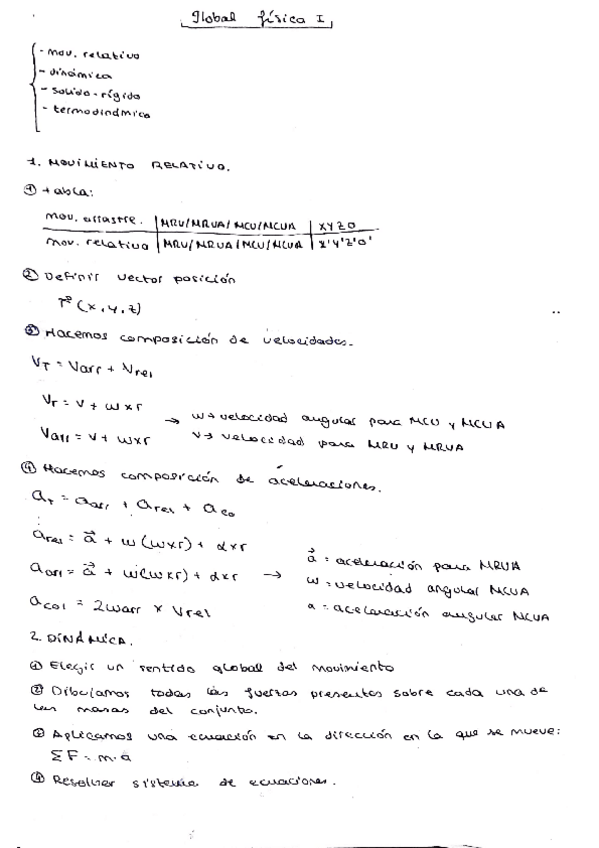 Global física I
- mov. relativo
- dinámica
- solido-rígido
- termodinámica
1. MOVIMIENTO RELATIVO.
① tabla:
mov. arrastre. | MRU/MRUA/MCU/MCUA | XYZO
mov. relativo | MRU/MRUA/MCU/MCUA | X'Y'Z'O'
② Definir vector posición
r⃗ (x,y,z)
③ Hacemos composición de velocidades.
V_T = Varr + Vrel
Vr = v + w x r
→ w → velocidad angular para MCU y MCUA
Varr = v + w x r
v → velocidad para MRU y MRUA
④ Hacemos composición de aceleraciones.
a_t = aarr + arel + aco
arel = a⃗ + w (w x r) + α x r
a⃗ = aceleración para MRUA
aarr = a⃗ + w(w x r) + α x r →
w = velocidad angular MCUA
acol = 2warr x Vrel
α = aceleración angular MCUA
2. DINÁMICA.
① Elegir un sentido global del movimiento
② Dibujamos todas las fuerzas presentes sobre cada una de
las masas del conjunto.
③ Aplicamos una ecuación en la dirección en la que se mueve:
ΣF = m·a
④ Resolver sistema de ecuaciones.